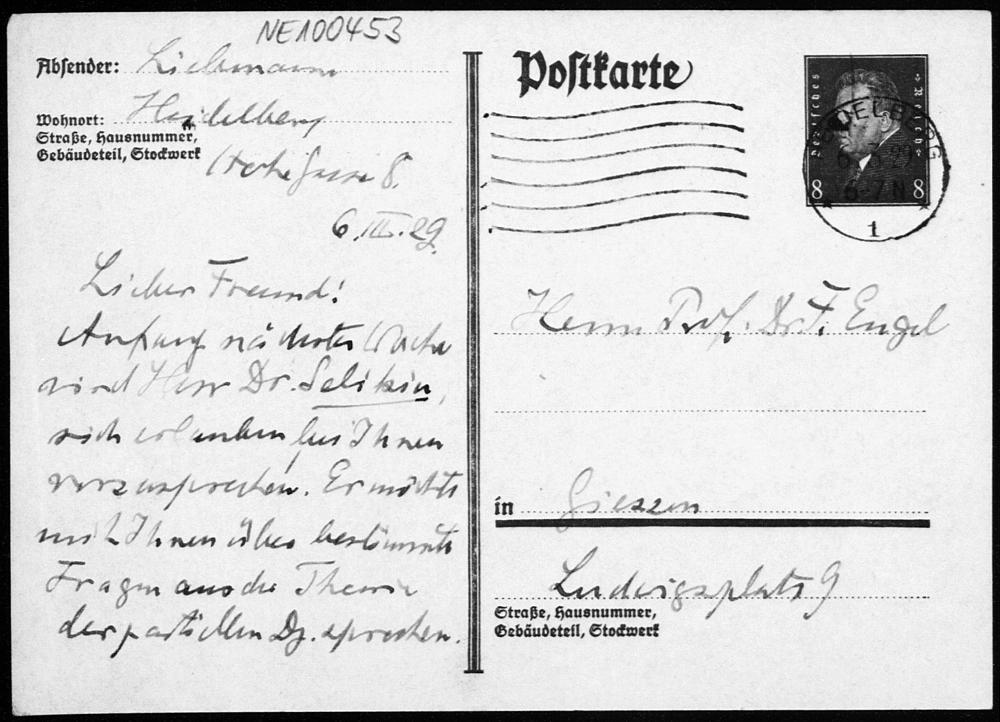 NE100453
Absender: Liebmann
Wohnort: Heidelberg
Straße, Hausnummer,
Gebäudeteil, Stockwerk
8.
6. III. 29.
Lieber Freund!
Anfang nächster Woche
wird Herr Dr. Selikin,
sich erlauben bei Ihnen
vorzusprechen. Er möchte
mit Ihnen über bestimmte
Fragen aus der Theorie
der partiellen Dg. sprechen.
Postkarte
Deutsches Reich
8 8
HEIDELBERG
6. 3. 29
6-7 N
1
Herrn Prof. Dr. F. Engel
in Giessen
Ludwigsplatz 9
Straße, Hausnummer,
Gebäudeteil, Stockwerk